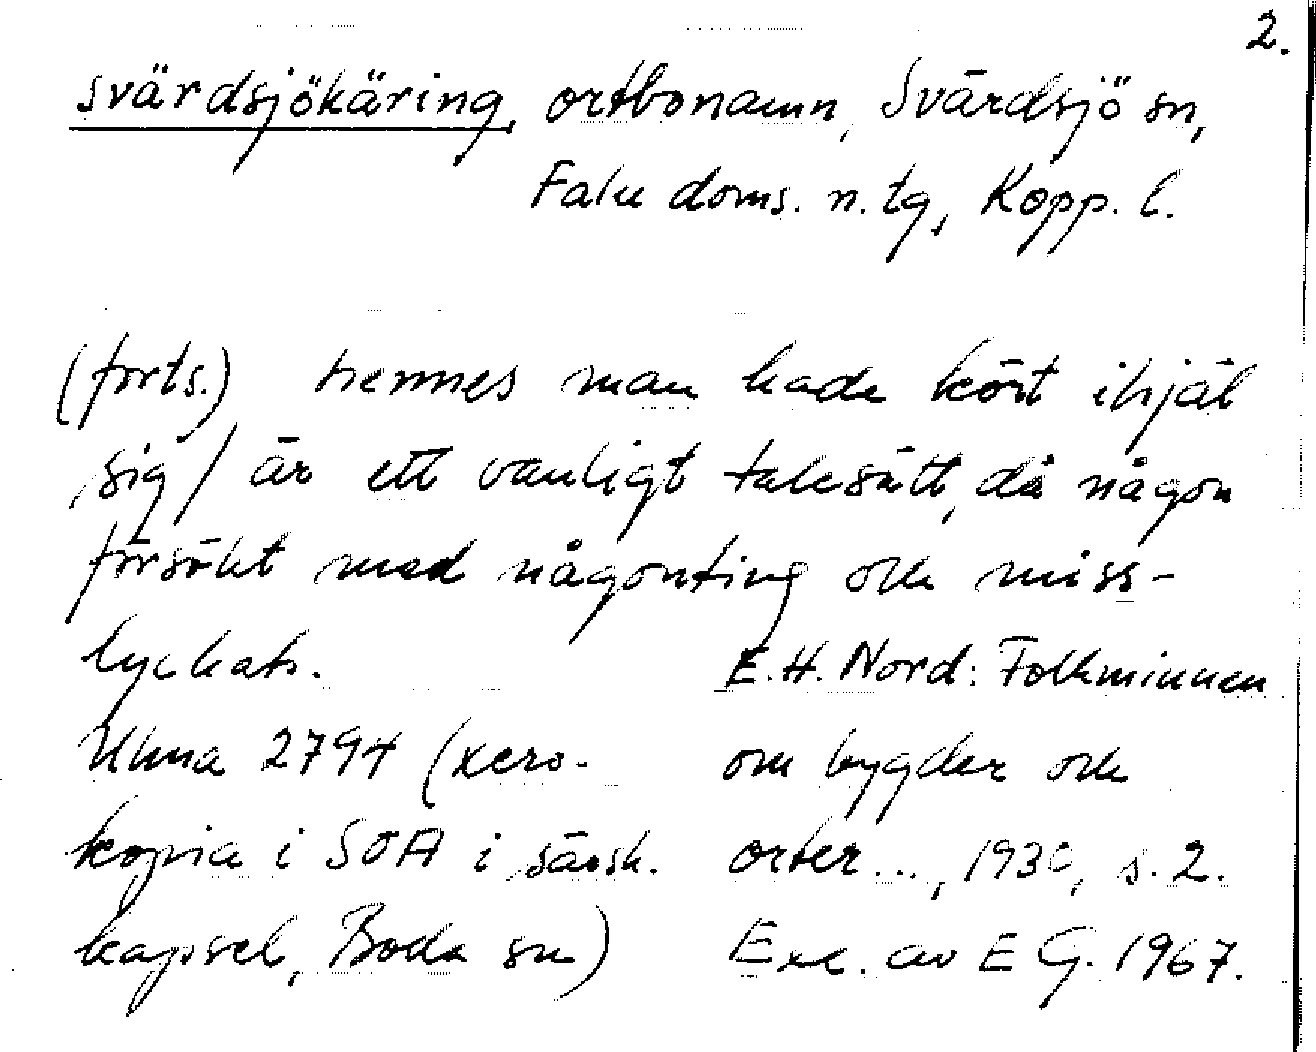 2.
svärdsjökäring, ortbonamn, Svärdsjö sn,
Falu doms. n. tg, Kopp. l.
(forts.) hennes man hade kört ihjäl
sig / är ett vanligt talesätt, då någon
försökt med någonting och miss-
lyckats.
E.H. Nord: Folkminnen
Ulma 2794 (xero-
om bygder och
kopia i SOA i särsk.
orter..., 1930, s. 2.
kapsel, Boda sn)
Exc. av E G. 1967.